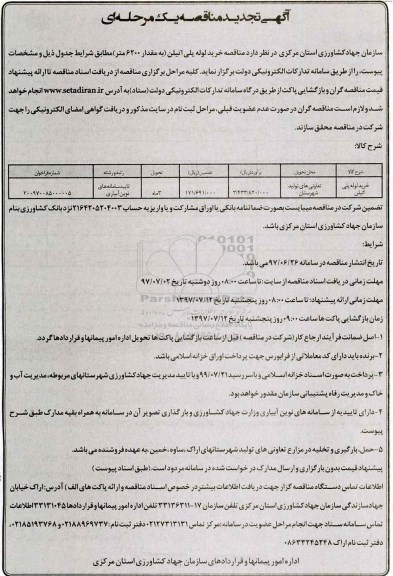 آگهی تجدید مناقصه یک مرحله‌ای
سازمان جهاد کشاورزی استان مرکزی در نظر دارد مناقصه خرید لوله پلی اتیلن (به مقدار ۶۲۰۰ متر) مطابق شرایط جدول ذیل و مشخصات
پیوست، را از طریق سامانه تدارکات الکترونیکی دولت برگزار نماید. کلیه مراحل برگزاری مناقصه از دریافت اسناد مناقصه تا ارائه پیشنهاد
قیمت مناقصه گران و بازگشایی پاکت از طریق درگاه سامانه تدارکات الکترونیکی دولت (ستاد) به آدرس www.setadiran.ir انجام خواهد
شد و لازم است مناقصه گران در صورت عدم عضویت قبلی، مراحل ثبت نام در سایت مذکور و دریافت گواهی امضای الکترونیکی را جهت
شرکت در مناقصه محقق سازند.
شرح کالا:
شرح کالا محل تحویل برآورد(ریال) تضمین(ریال) تحویل رتبه و رشته شماره فراخوان
خرید لوله پلی اتیلن تعاونی های تولید شهرستان ۳/۴۳۳/۸۲۰/۰۰۰ ۱۷۱/۶۹۱/۰۰۰ ۳ماه تاییدسامانه‌های نوین آبیاری ۲۰۰۹۷۰۰۸۵۰۰۰۰۰۵
تضمین شرکت در مناقصه میبایست بصورت ضمانتنامه بانکی یا اوراق مشارکت و یا واریز به حساب ۲۱۶۴۲۰۵۲۰۴۰۰۳ نزد بانک کشاورزی بنام
سازمان جهاد کشاورزی استان مرکزی باشد.
شرایط:
تاریخ انتشار مناقصه در سامانه ۹۷/۰۶/۲۶ می باشد.
مهلت زمانی دریافت اسناد مناقصه از سایت: تا ساعت ۰۸:۰۰ روز دوشنبه تاریخ ۹۷/۰۷/۰۲
مهلت زمانی ارائه پیشنهاد: تا ساعت ۰۸:۰۰ روز پنجشنبه تاریخ ۱۳۹۷/۰۷/۱۲
زمان بازگشایی پاکت ها ساعت ۰۹:۰۰ روز پنجشنبه تاریخ ۱۳۹۷/۰۷/۱۲
۱-اصل ضمانت فرآیند ارجاع کار (شرکت در مناقصه) قبل از ساعت بازگشایی پاکت ها تحویل اداره امور پیمانها و قراردادها گردد.
۲-برنده باید دارای کد معاملاتی از فرابورس جهت پرداخت اوراق خزانه اسلامی باشد.
۳-پرداخت به صورت اسناد خزانه اسلامی و با سررسید ۹۹/۰۷/۲۱ و با تایید مدیریت جهاد کشاورزی شهرستانهای مربوطه، مدیریت آب و
خاک و مدیریت رفاه پشتیبانی سازمان مقدور خواهد بود.
۴-دارای تاییدیه از سامانه های نوین آبیاری وزارت جهاد کشاورزی و بارگذاری تصویر آن در سامانه به همراه بقیه مدارک طبق شرح
پیوست.
۵-حمل، بارگیری و تخلیه در مزارع تعاونی های تولید شهرستانهای اراک، ساوه، خمین، به عهده فروشنده می باشد.
پیشنهاد قیمت بدون بارگزاری و ارسال مدارک درخواست شده در سامانه مردود است.(طبق اسناد پیوست)
اطلاعات تماس دستگاه مناقصه گزار جهت دریافت اطلاعات بیشتر در خصوص اسناد مناقصه و ارائه پاکت های الف) آدرس: اراک خیابان
جهادسازندگی سازمان جهاد کشاورزی استان مرکزی تلفن سازمان ۱۷-۳۳۱۳۶۲۱۱ تلفن اداره امور پیمانها و قراردادها ۳۳۱۳۱۰۴۵ اطلاعات
تماس سامانه ستاد جهت انجام مراحل عضویت در سامانه: مرکز تماس ۰۲۱۲۷۳۱۳۱۳۱ دفتر ثبت نام: ۰۲۱۸۸۹۶۹۷۳۷ و ۰۲۱۸۵۱۹۳۷۶۸،
دفتر ثبت نام اراک ۰۸۶۳۳۲۴۵۲۴۸
اداره امور پیمانها و قراردادهای سازمان جهاد کشاورزی استان مرکزی